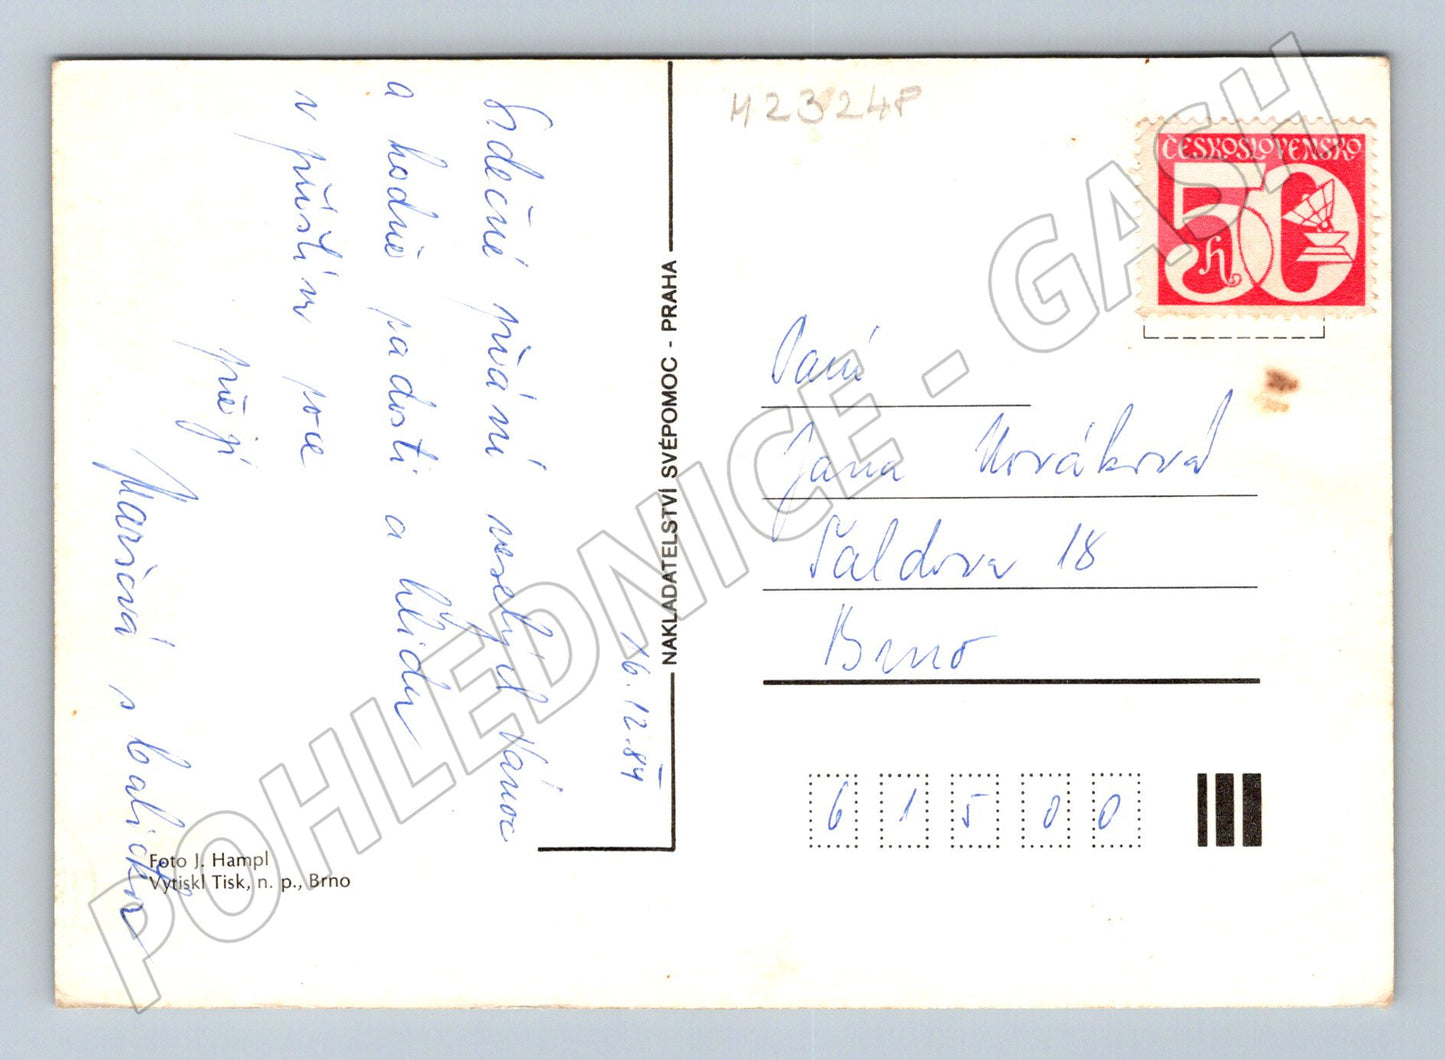 Srdečné přání veselých Vánoc
a hodně radosti a klidu
v příštím roce
přejí
Maršová s
16.12.84
Foto J. Hampl
Vytiskl Tisk, n. p., Brno
NAKLADATELSTVÍ SVÉPOMOC - PRAHA
M2324P
ČESKOSLOVENSKO
50 h
Paní
Jana Nováková
18
Brno
6 1 5 0 0
POHLEDNICE - GASH